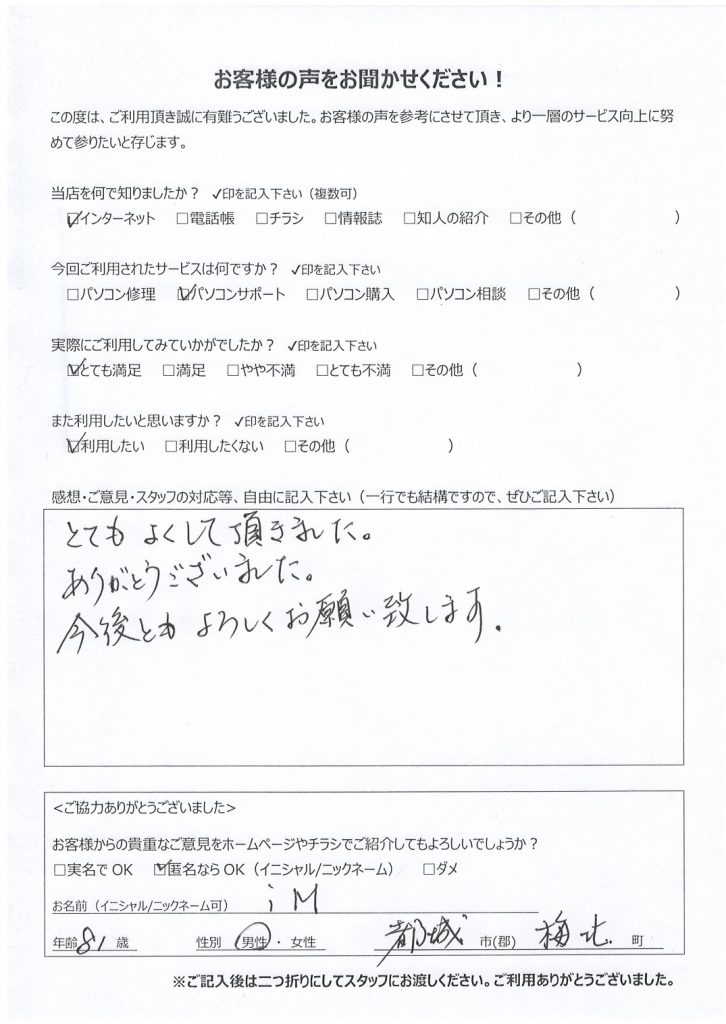 お客様の声をお聞かせください！
この度は、ご利用頂き誠に有難うございました。お客様の声を参考にさせて頂き、より一層のサービス向上に努
めて参りたいと存じます。
当店を何で知りましたか？ ✓印を記入下さい（複数可）
☑インターネット □電話帳 □チラシ □情報誌 □知人の紹介 □その他（ ）
今回ご利用されたサービスは何ですか？ ✓印を記入下さい
□パソコン修理 ☑パソコンサポート □パソコン購入 □パソコン相談 □その他（ ）
実際にご利用してみていかがでしたか？ ✓印を記入下さい
☑とても満足 □満足 □やや不満 □とても不満 □その他（ ）
また利用したいと思いますか？ ✓印を記入下さい
☑利用したい □利用したくない □その他（ ）
感想・ご意見・スタッフの対応等、自由に記入下さい（一行でも結構ですので、ぜひご記入下さい）
とても よくして頂きました。
ありがとうございました。
今後とも よろしくお願い致します.
＜ご協力ありがとうございました＞
お客様からの貴重なご意見をホームページやチラシでご紹介してもよろしいでしょうか？
□実名でOK ☑匿名ならOK（イニシャル/ニックネーム） □ダメ
お名前（イニシャル/ニックネーム可） i M
年齢 81 歳 性別 男性・女性 都城 市(郡) 梅北 町
※ご記入後は二つ折りにしてスタッフにお渡しください。ご利用ありがとうございました。